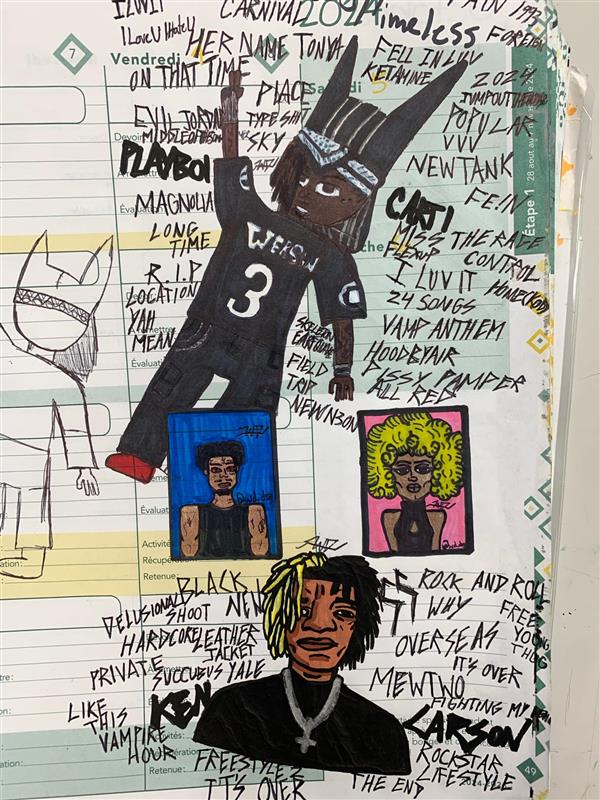 ILWIT
CARNIVAL
2024
Timeless
1993
I Love U I Hate U
HER NAME TONYA
FOREIGN
7 Vendredi
Samedi
5
ON THAT TIME
FELL IN LUV
KETAMINE
2024
PLACE
JUMPOUTTHEHOUSE
EVIL JORDAN
TYPE SHIT
POPULAR
Devoir
SKY
VVV
PLAYBOI
NEW TANK
MAGNOLIA
WERSW
3
CARTI
FE!N
Étape 1
28 août au
Évaluation
LONG
TIME
MISS THE RAGE
FLEXUP
CONTROL
R.I.P
I LUV IT
HOMECKOD
LOCATION
24 SONGS
YAH
MEAN
VAMP ANTHEM
SKELETON
HOODBYAIR
FIELD
TRIP
PISSY PAMPER
ALL RED
NEWN3ON
Évaluation
Activité
Récupération
Retenue:
BLACK
NEW
ROCK AND ROLL
SS
DELUSIONAL
SHOOT
WHY
FREE
YOUNG
THUG
HARDCORE
LEATHER
JACKET
OVERSEAS
PRIVATE
SUCCUBUS
YALE
IT'S OVER
MEWTWO
LIKE
THIS
KEN
FIGHTING MY
CARSON
VAMPIRE
HOUR
Retenue:
FREESTYLE 2
IT'S OVER
THE END
ROCKSTAR
LIFESTYLE
49